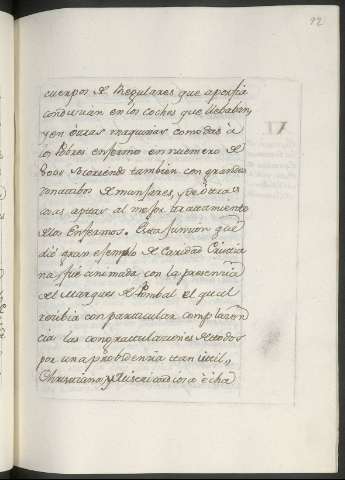 92
cuerpos de Regulares que aporfia
conducian en los coches que llebaban,
y en otras maquinas comodas à
los Pobres enfermos en numero de
800 socorriendo tambien con grandes
donativos de mantenes, y de otras
cosas aptas al mejor tratamiento
de los Enfermos. Esta funcion que
diò gran exemplo de Caridad Cristia
na fue animada con la presencia
del Marques de Pombal el qual
recibia con particular complacen
cia las congratulaciones de todos
por una probidencia tan util,
Christiana, y Misericordiosa è cha
VI